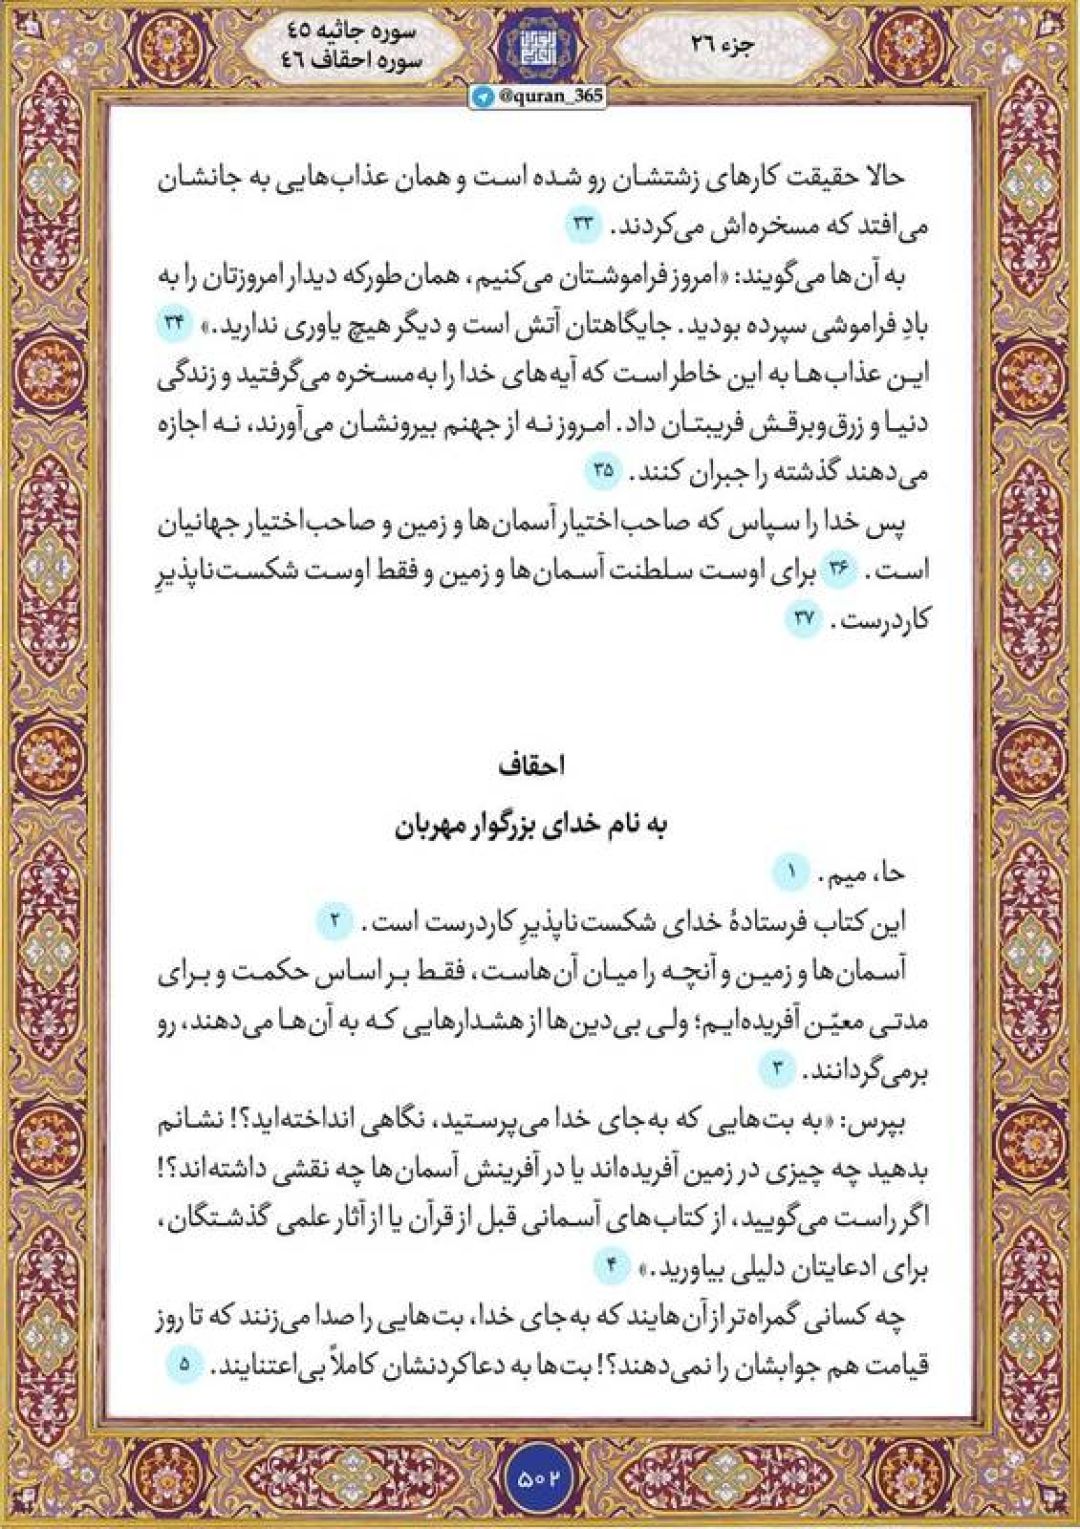 جزء ۲۶
سوره جاثیه ۴۵
سوره احقاف ۴۶
@quran_365
حالا حقیقت کارهای زشتشان رو شده است و همان عذاب‌هایی به جانشان
می‌افتد که مسخره‌اش می‌کردند. ۳۳
به آن‌ها می‌گویند: «امروز فراموشتان می‌کنیم، همان‌طورکه دیدار امروزتان را به
بادِ فراموشی سپرده بودید. جایگاهتان آتش است و دیگر هیچ یاوری ندارید.» ۳۴
این عذاب‌ها به این خاطر است که آیه‌های خدا را به‌مسخره می‌گرفتید و زندگی
دنیا و زرق‌وبرقش فریبتان داد. امروز نه از جهنم بیرونشان می‌آورند، نه اجازه
می‌دهند گذشته را جبران کنند. ۳۵
پس خدا را سپاس که صاحب‌اختیار آسمان‌ها و زمین و صاحب‌اختیار جهانیان
است. ۳۶ برای اوست سلطنت آسمان‌ها و زمین و فقط اوست شکست‌ناپذیرِ
کاردرست. ۳۷
احقاف
به نام خدای بزرگوار مهربان
حا، میم. ۱
این کتاب فرستادهٔ خدای شکست‌ناپذیرِ کاردرست است. ۲
آسمان‌ها و زمین و آنچه را میان آن‌هاست، فقط بر اساس حکمت و برای
مدتی معیّن آفریده‌ایم؛ ولی بی‌دین‌ها از هشدارهایی که به آن‌ها می‌دهند، رو
برمی‌گردانند. ۳
بپرس: «به بت‌هایی که به‌جای خدا می‌پرستید، نگاهی انداخته‌اید؟! نشانم
بدهید چه چیزی در زمین آفریده‌اند یا در آفرینش آسمان‌ها چه نقشی داشته‌اند؟!
اگر راست می‌گویید، از کتاب‌های آسمانی قبل از قرآن یا از آثار علمی گذشتگان،
برای ادعایتان دلیلی بیاورید.» ۴
چه کسانی گمراه‌تر از آن‌هایند که به‌جای خدا، بت‌هایی را صدا می‌زنند که تا روز
قیامت هم جوابشان را نمی‌دهند؟! بت‌ها به دعاکردنشان کاملاً بی‌اعتنایند. ۵
۵۰۲